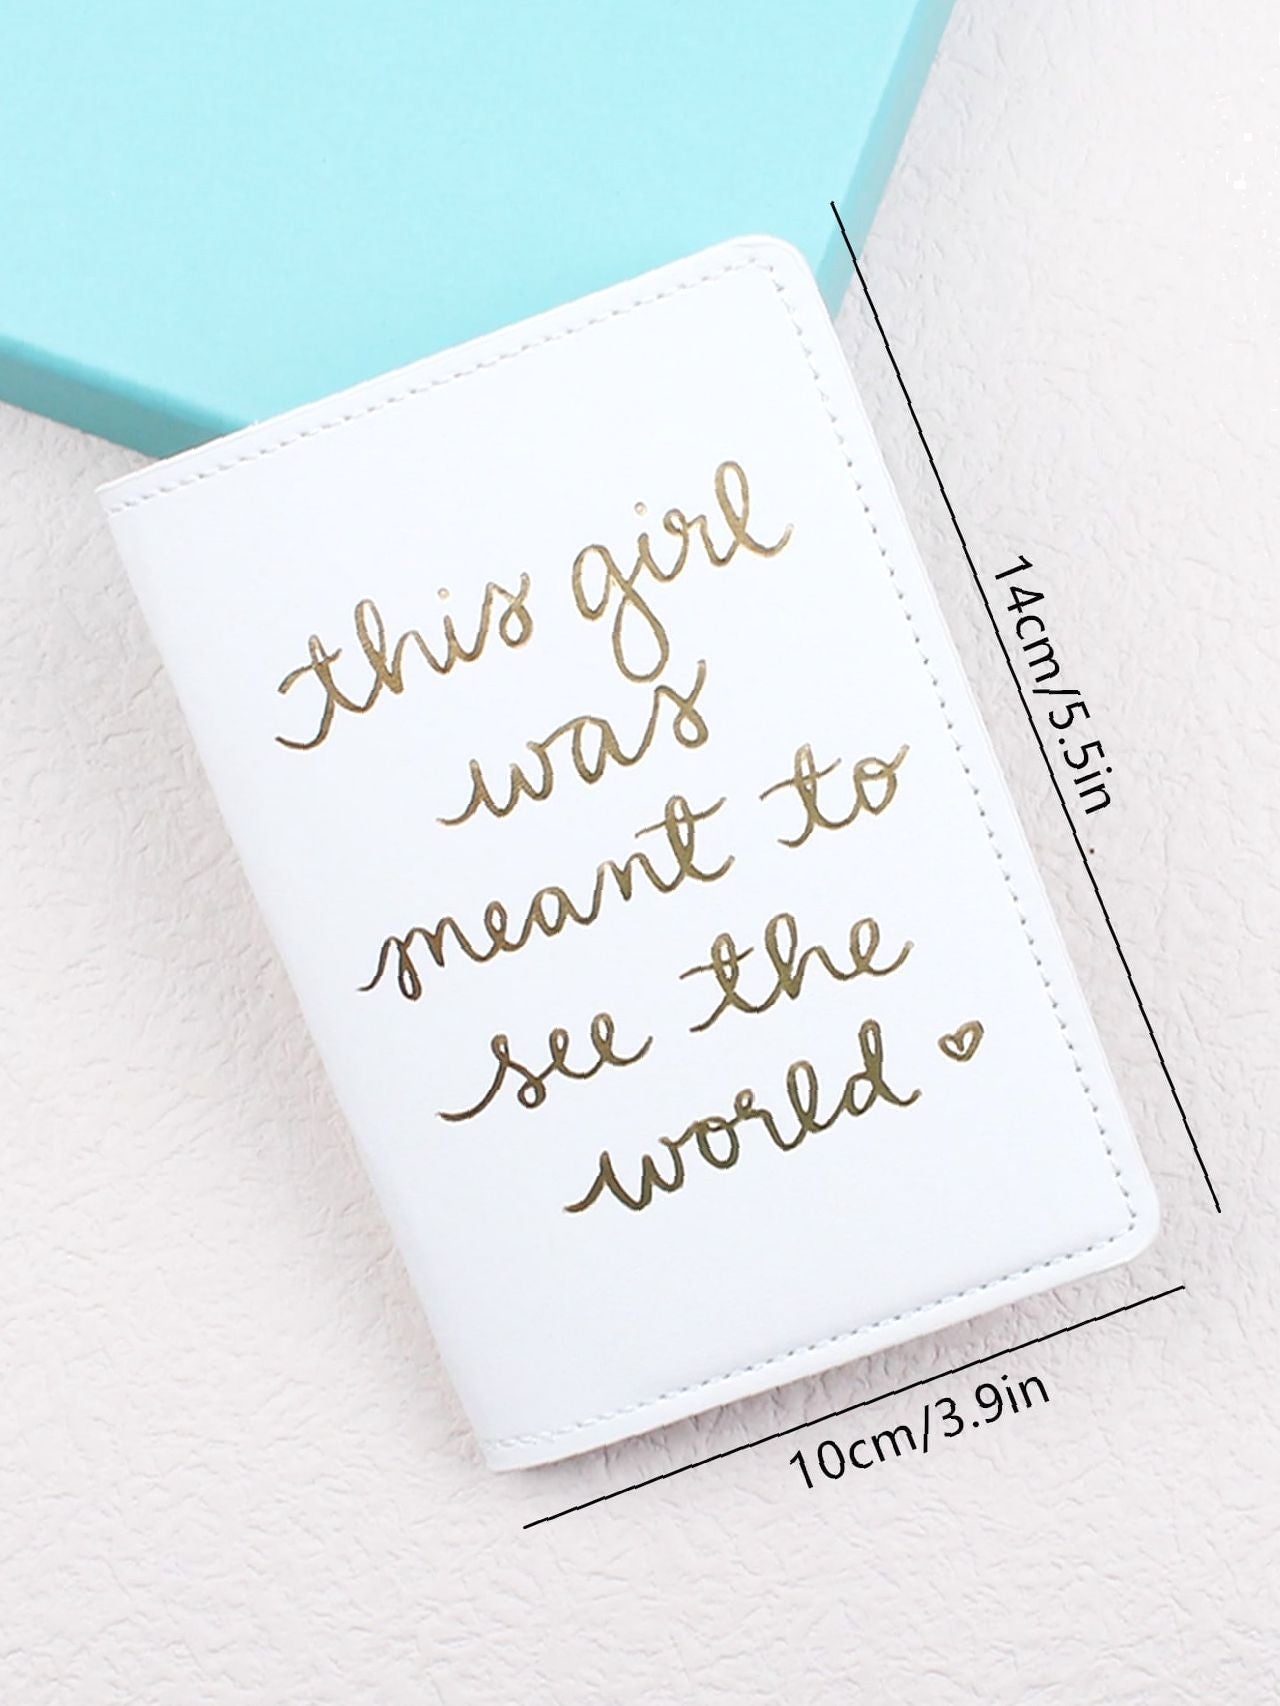 this girl
was
meant to
see the
world ♡
14cm/5.5in
10cm/3.9in